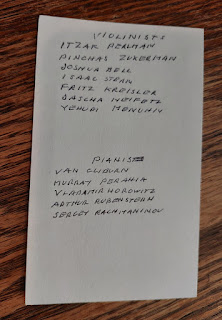 VIOLINISTS
ITZAK PERLMAN
PINCHAS ZUKERMAN
JOSHUA BELL
ISAAC STERN
FRITZ KREISLER
JASCHA HEIFETZ
YEHUDI MENUHIN
PIANISTS
VAN CLIBURN
MURRAY PERAHIA
VLADAMIR HOROWITZ
ARTHUR RUBENSTEIN
SERGEY RACHMANINOV